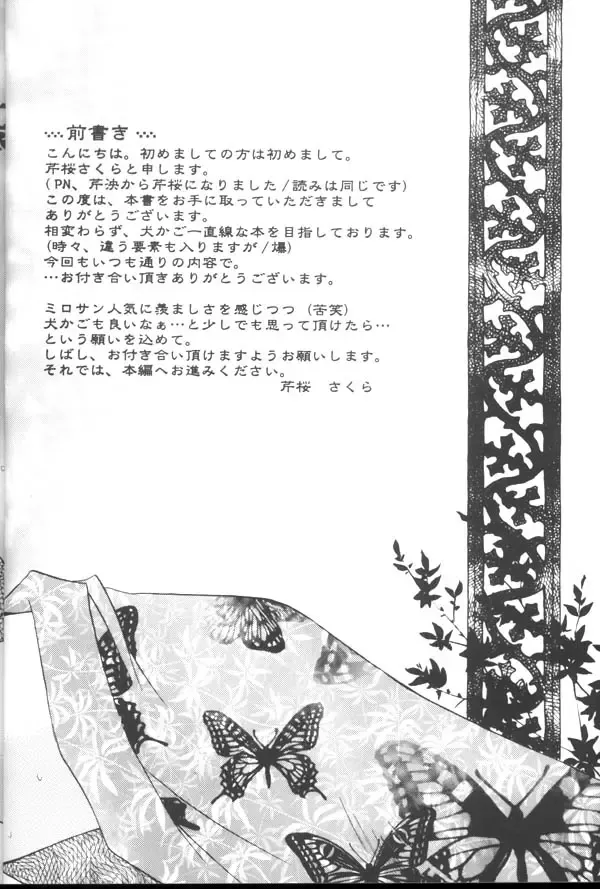 …前書き…
こんにちは。初めましての方は初めまして。
芹桜さくらと申します。
(PN、芹泱から芹桜になりました/読みは同じです)
この度は、本書をお手に取っていただきまして
ありがとうございます。
相変わらず、犬かご一直線な本を目指しております。
(時々、違う要素も入りますが/爆)
今回もいつも通りの内容で。
…お付き合い頂きありがとうございます。
ミロサン人気に羨ましさを感じつつ (苦笑)
犬かごも良いなぁ…と少しでも思って頂けたら…
という願いを込めて。
しばし、お付き合い頂けますようお願いします。
それでは、本編へお進みください。
芹桜 さくら